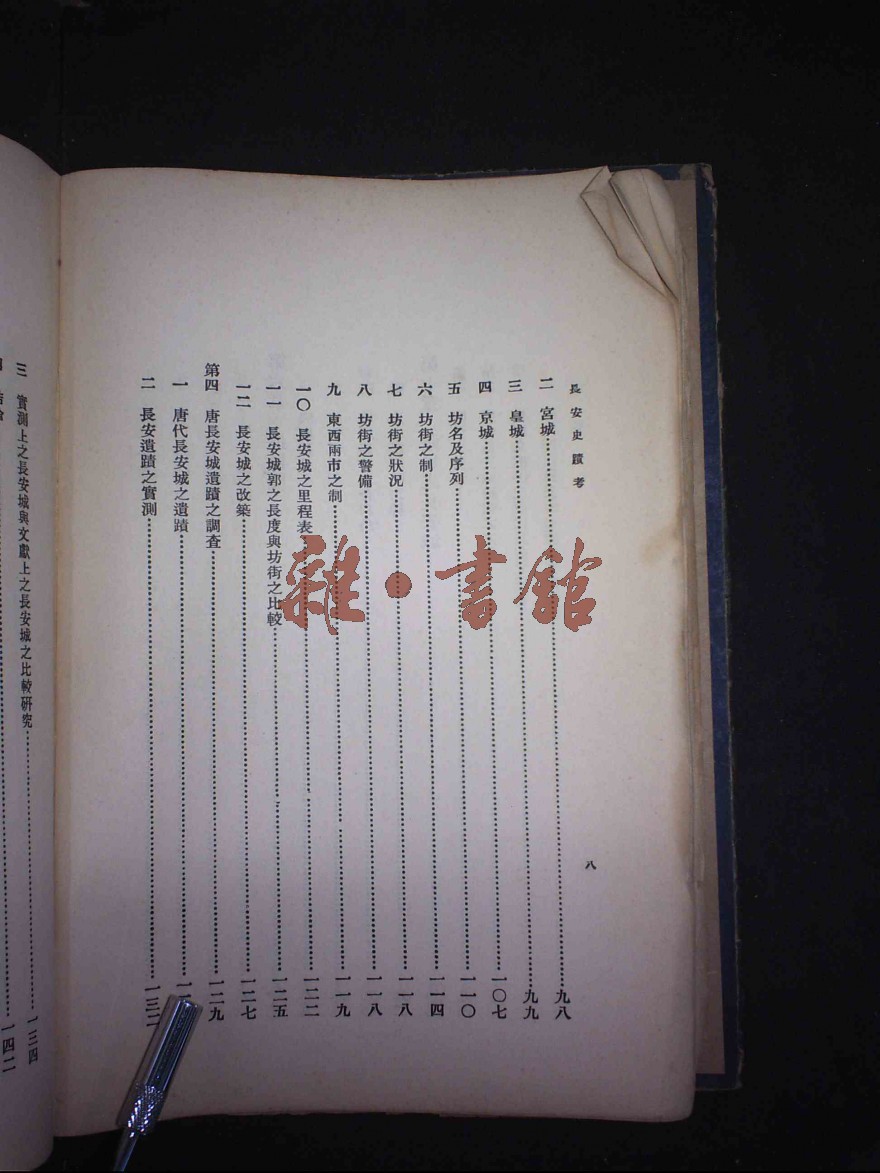 長安史蹟考
八
二 宮城 九八
三 皇城 九九
四 京城 一〇七
五 坊名及序列 一一〇
六 坊街之制 一一四
七 坊街之狀況 一一八
八 坊街之警備 一一八
九 東西兩市之制 一一九
一〇 長安城之里程表 一二二
一一 長安城郭之長度與坊街之比較 一二五
一二 長安城之改築 一二七
第四 唐長安城遺蹟之調査 一二九
一 唐代長安城之遺蹟
二 長安遺蹟之實測 一三二
三 實測上之長安城與文獻上之長安城之比較硏究 一三四
一四二
雜·書館